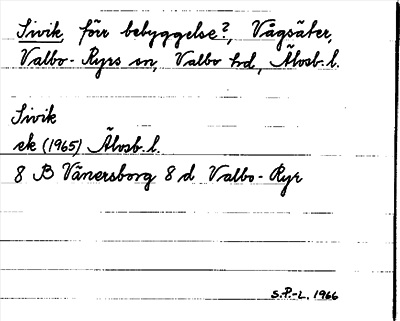 Sivik, förr bebyggelse?, Vågsäter,
Valbo-Ryrs sn, Valbo hd, Älvsb. l.
Sivik
ek (1965) Älvsb. l.
8 B Vänersborg 8 d Valbo-Ryr
S.P.-L. 1966